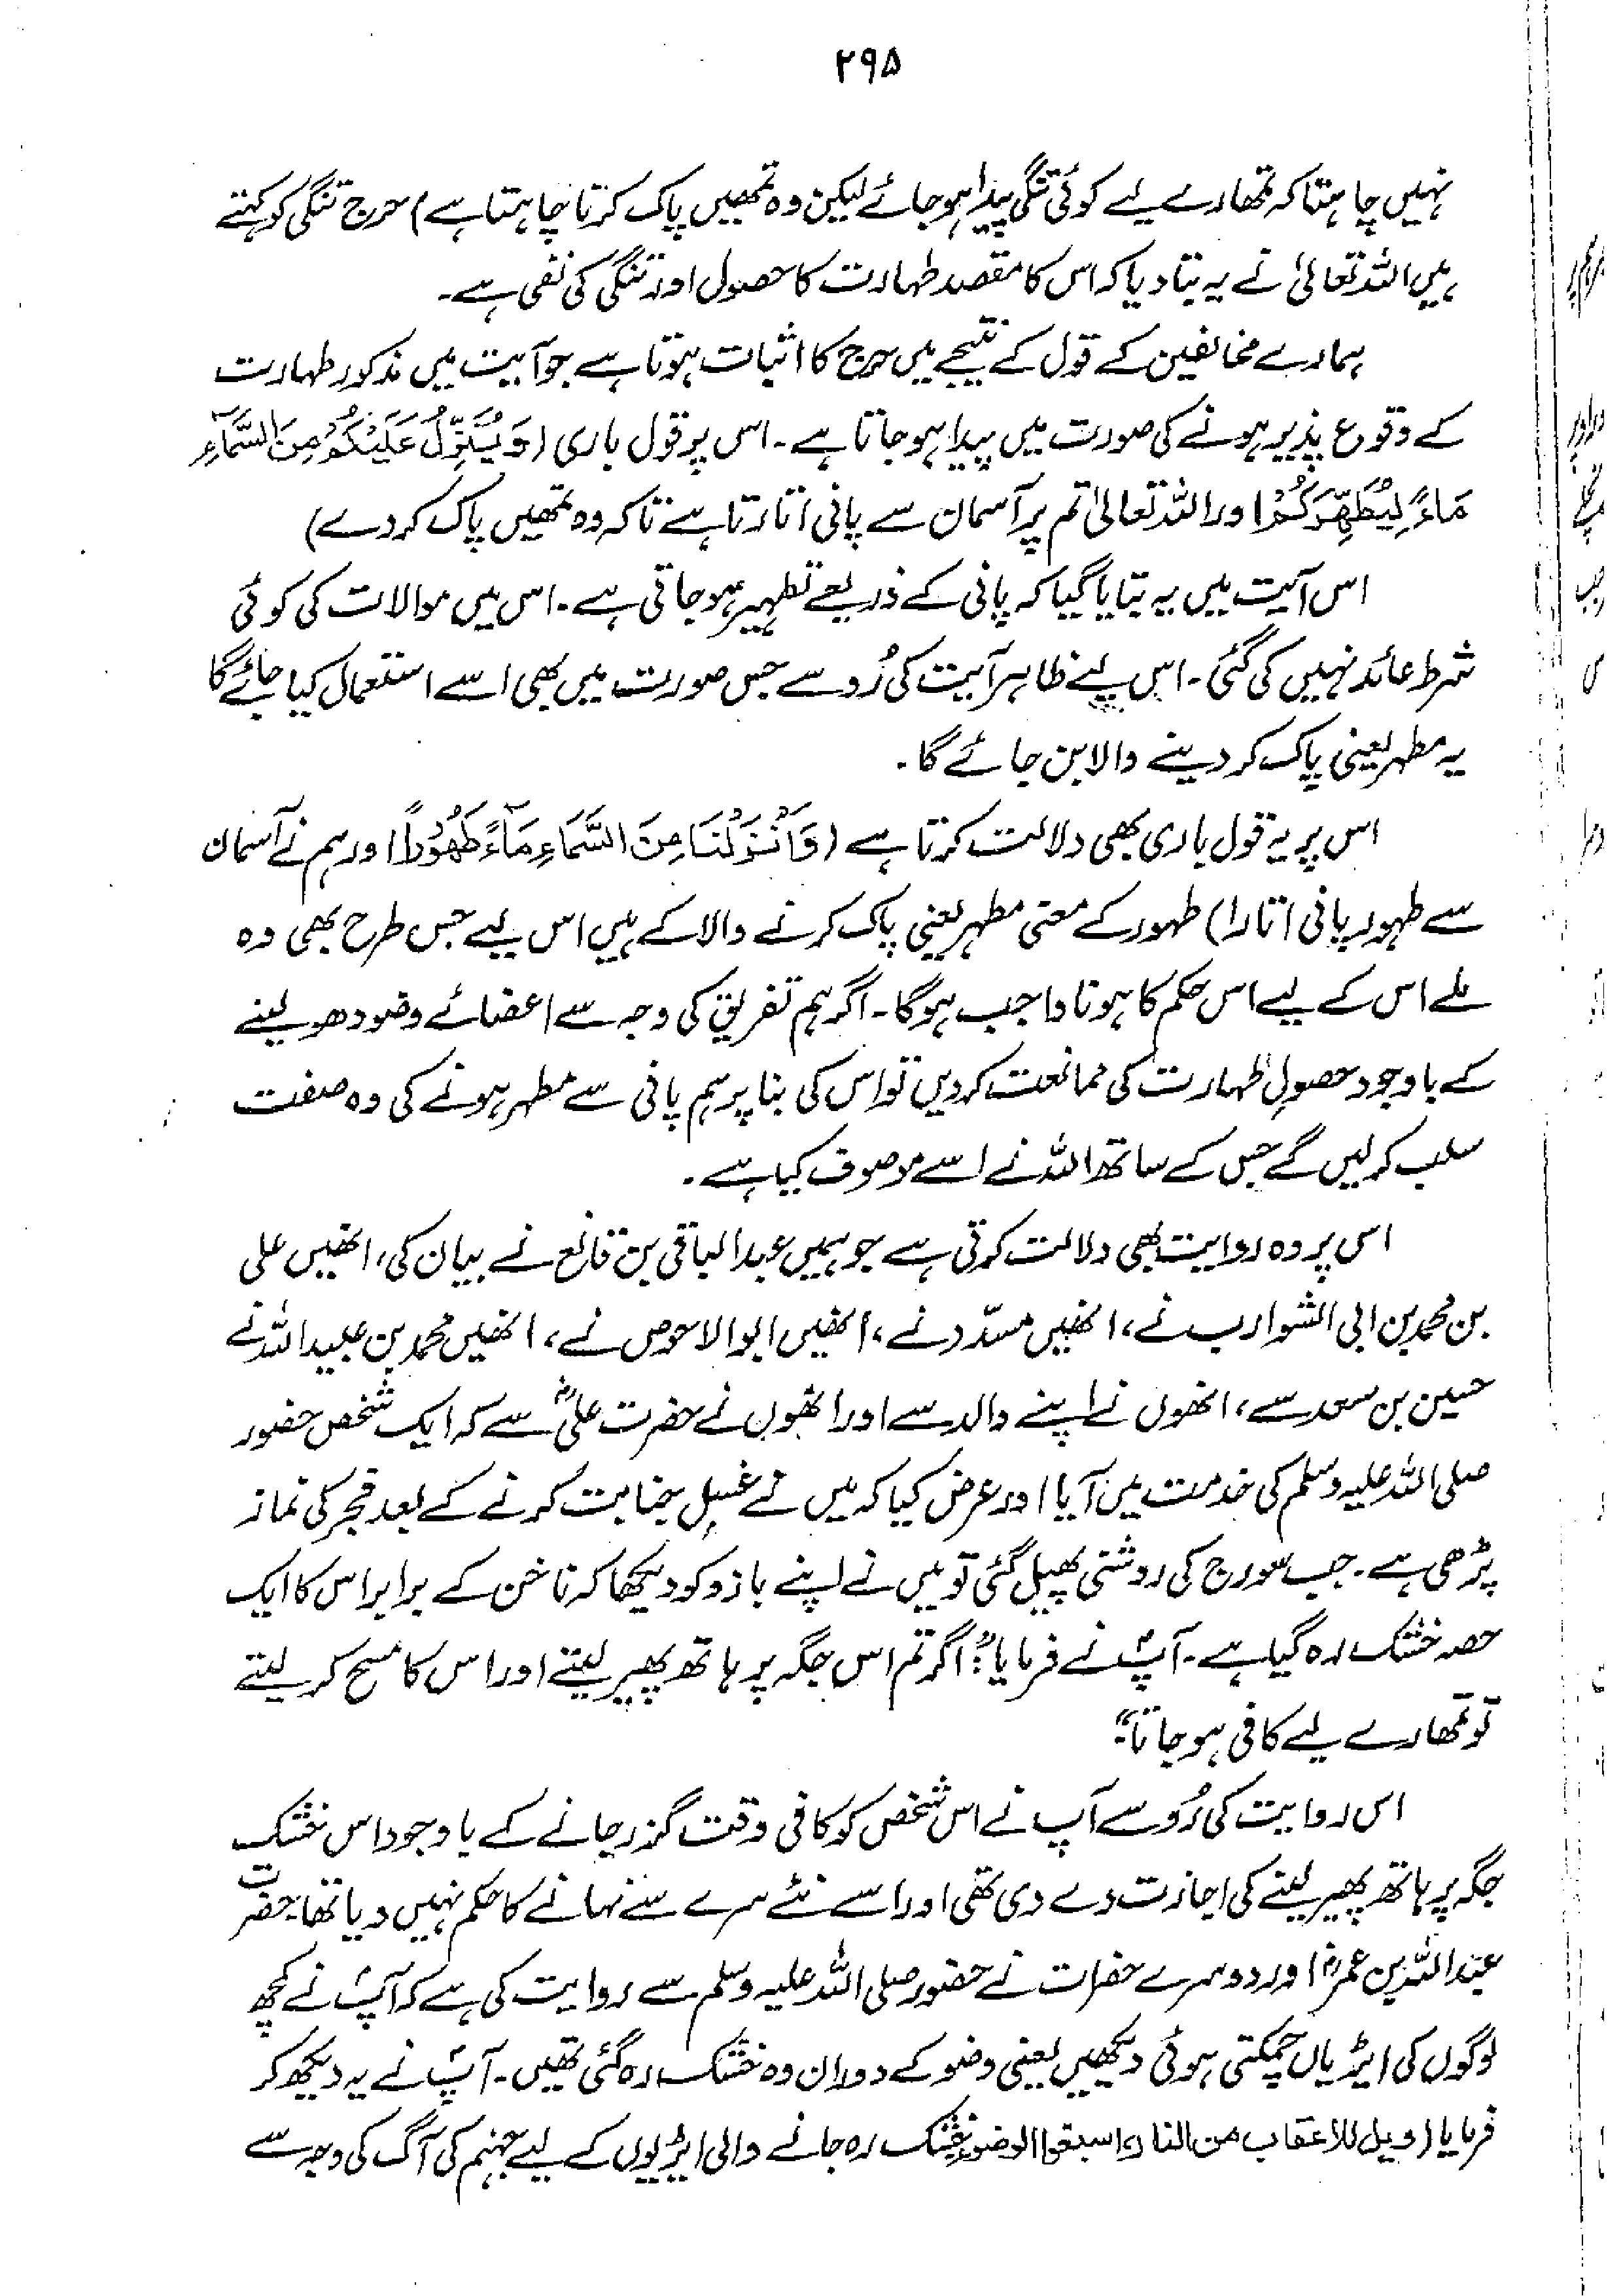 ۲۹۵
نہیں چاہتا کہ تمھارے لیے کوئی تنگی پیدا ہو جائے لیکن وہ تمھیں پاک کرنا چاہتا ہے) حرج تنگی کو کہتے
ہیں اللہ تعالیٰ نے یہ بتا دیا کہ اس کا مقصد طہارت کا حصول اور تنگی کی نفی ہے۔
ہمارے مخالفین کے قول کے نتیجے میں حرج کا اثبات ہوتا ہے جو آیت میں مذکور طہارت
کے وقوع پذیر ہونے کی صورت میں پیدا ہو جاتا ہے۔ اس پر قول باری (وَيُنَزِّلُ عَلَيْكُمْ مِنَ السَّمَآءِ
مَاءً لِيُطَهِّرَكُمْ اور اللہ تعالیٰ تم پر آسمان سے پانی اتارتا ہے تاکہ وہ تمھیں پاک کر دے)
اس آیت میں یہ بتایا گیا کہ پانی کے ذریعے تطہیر ہو جاتی ہے۔ اس میں موالات کی کوئی
شرط عائد نہیں کی گئی۔ اس لیئے ظاہر آیت کی رُو سے جس صورت میں بھی اسے استعمال کیا جائے گا
یہ مطہر یعنی پاک کر دینے والا بن جائے گا۔
اس پر یہ قول باری بھی دلالت کرتا ہے (وَاَنْزَلْنَا مِنَ السَّمَاءِ مَآءً طَهُوْرًا اور ہم نے آسمان
سے طہور پانی اتارا) طہور کے معنی مطہر یعنی پاک کرنے والا کے ہیں اس لیے جس طرح بھی وہ
ملے اس کے لیے اس حکم کا ہونا واجب ہوگا۔ اگر ہم تفریق کی وجہ سے اعضائے وضو دھو لینے
کے باوجود حصولِ طہارت کی ممانعت کر دیں تو اس کی بنا پر ہم پانی سے مطہر ہونے کی وہ صفت
سلب کر لیں گے جس کے ساتھ اللہ نے اسے موصوف کیا ہے۔
اس پر وہ روایت بھی دلالت کرتی ہے جو ہمیں عبدالباقی بن قانع نے بیان کی، انھیں علی
بن محمد بن ابی الشوارب نے، انھیں مسدّد نے، انھیں ابوالاحوص نے، انھیں محمد بن عبیداللہ نے
حسین بن سعد سے، انھوں نے اپنے والد سے اور انھوں نے حضرت علیؓ سے کہ ایک شخص حضور
صلی اللہ علیہ وسلم کی خدمت میں آیا اور عرض کیا کہ میں نے غسلِ جنابت کرنے کے بعد فجر کی نماز
پڑھی ہے۔ جب سورج کی روشنی پھیل گئی تو میں نے اپنے بازو کو دیکھا کہ ناخن کے برابر اس کا ایک
حصہ خشک رہ گیا ہے۔ آپؐ نے فرمایا: "اگر تم اس جگہ پر ہاتھ پھیر لیتے اور اس کا مسح کر لیتے
تو تمھارے لیے کافی ہو جاتا"۔
اس روایت کی رُو سے آپ نے اس شخص کو کافی وقت گزر جانے کے باوجود اس خشک
جگہ پر ہاتھ پھیر لینے کی اجازت دے دی تھی اور اسے نئے سرے سے نہانے کا حکم نہیں دیا تھا۔ حضرت
عبداللہ بن عمرؓ اور دوسرے حضرات نے حضور صلی اللہ علیہ وسلم سے روایت کی ہے کہ آپؐ نے کچھ
لوگوں کی ایڑیاں چمکتی ہوئی دیکھیں یعنی وضو کے دوران وہ خشک رہ گئی تھیں۔ آپؐ نے یہ دیکھ کر
فرمایا (ویل للاعقاب من النار اسبغوا الوضوء خشک رہ جانے والی ایڑیوں کے لیے جہنم کی آگ کی وجہ سے